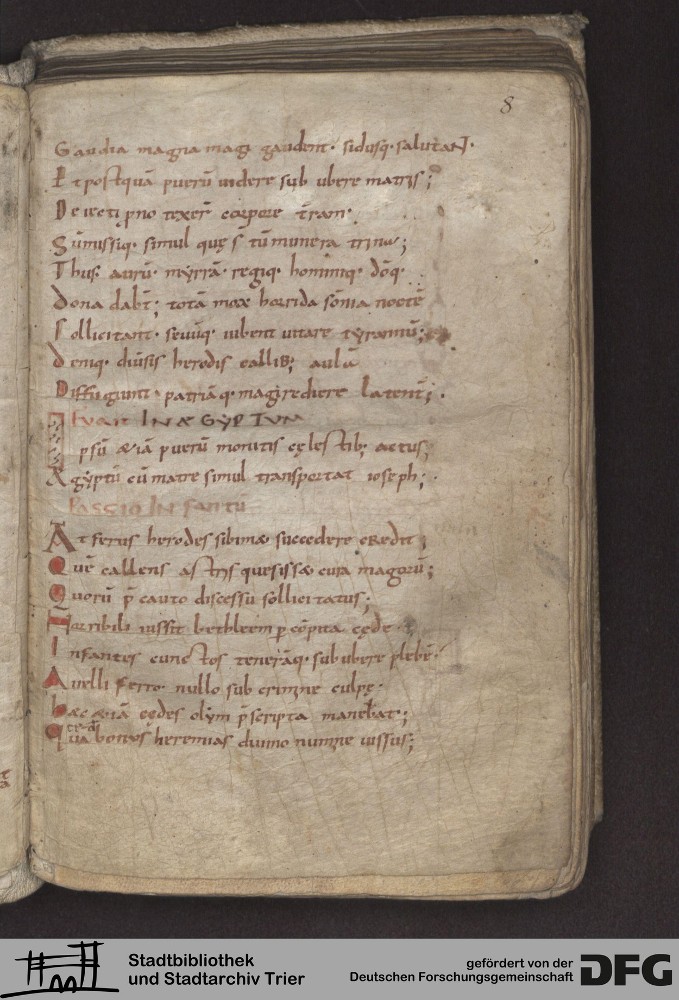 8
Gaudia magna magi gaudent· sidusq· salutaNT·
Et postquā puerū uidere sub ubere matris;
Deiecti ꝓno texer̄ corpore t̄ram·
Sūmissiq· simul quęs̄t tū munera trina;
Thus· aurū· mẏrrā· regiq· hominiq· dōq·
Dona dabt̄; totā mox horrida sōnia noctē
Sollicitant· seuūq· iubent uitare tẏrannū;
Deniq· diūsis herodis callib; aulā
Diffugiunt· patriāq· magi rediere latent̄;·
FUGA IN ÆGẎPTUM
Ipsū æiā puerū monitis cęlestib; actus;
Ægẏptū cū matre simul transportat ioseph;·
PASSIO INFANTŪ
At ferus herodes sibimæ succedere credit;
Quē callens astris quesissæ cura magorū;
Quorū p̄ cauto discessu sollicitatus;
Horribili iussit bethleem ꝑ cōpita cęde·
Infantes cunctos tenerāq· sub ubere plebē·
Auelli ferro· nullo sub crimine culpę·
Hæc æiā cędes olẏm p̄scripta manebat;
Quā bonus heremias diuino numine iussus;
Stadtbibliothek
und Stadtarchiv Trier
gefördert von der
Deutschen Forschungsgemeinschaft
DFG